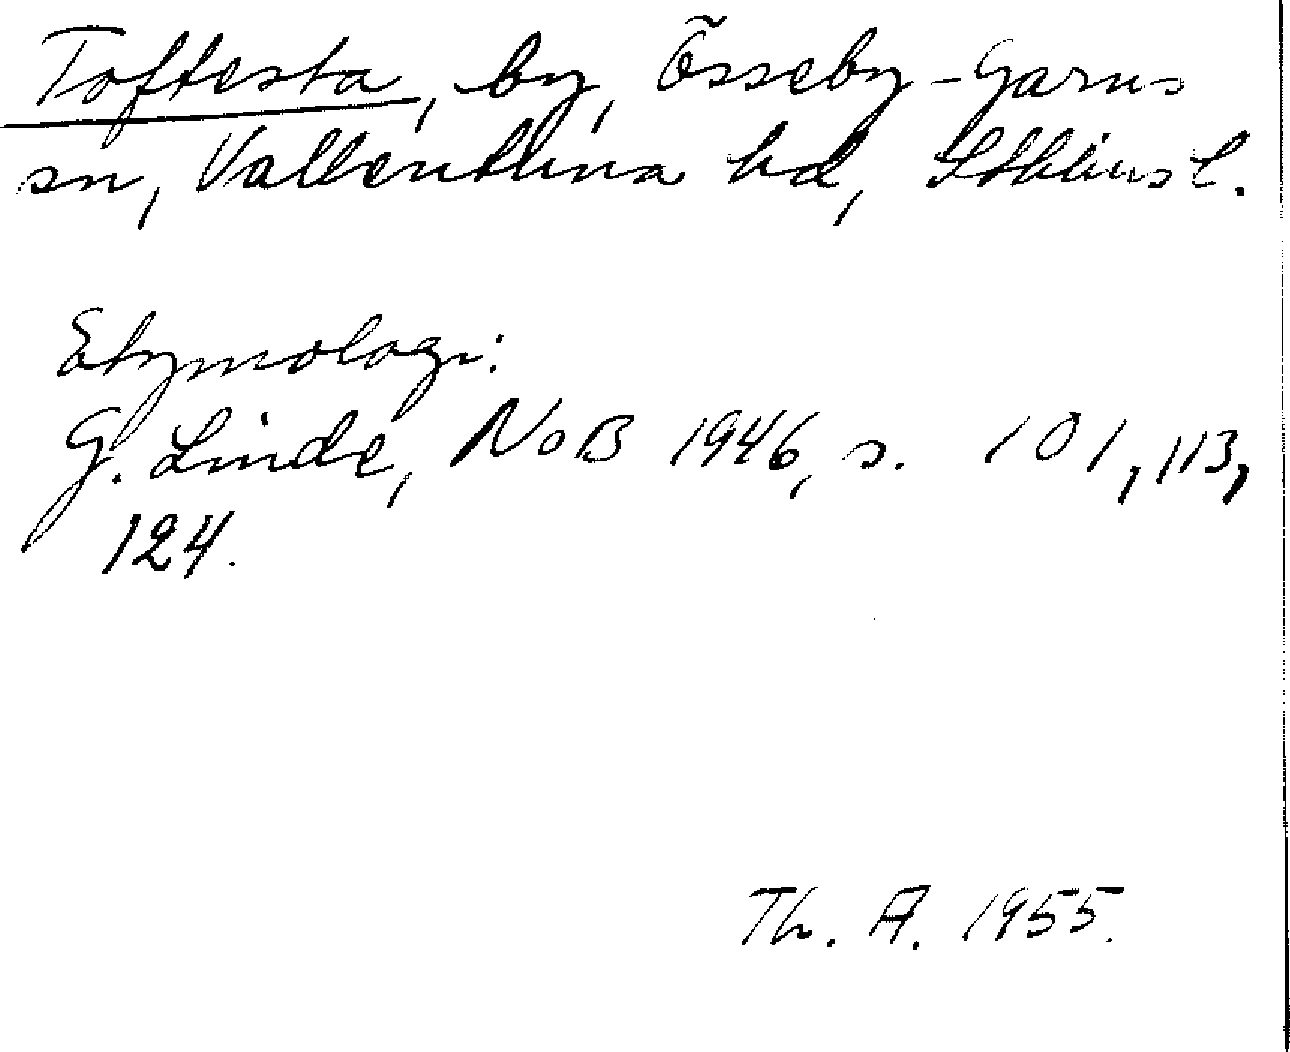 Toftesta, by, Össeby-Garns
sn, Vallentuna hd, Sthlms l.
Etymologi:
G. Linde, NoB 1946, s. 101, 113,
124.
Th. A. 1955.